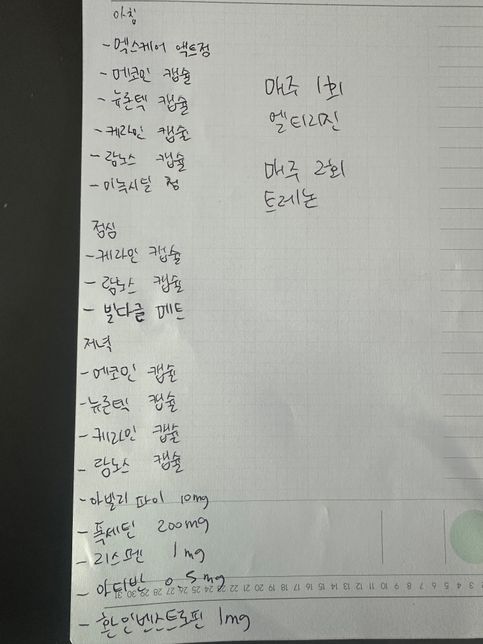 아침
- 멕스케어 액트정
- 메코민 캡슐
- 뉴론텍 캡슐
- 케라민 캡슐
- 람노스 캡슐
- 미녹시딜 정
점심
- 케라민 캡슐
- 람노스 캡슐
- 빌다글 메트
저녁
- 메코민 캡슐
- 뉴론텍 캡슐
- 케라민 캡슐
- 람노스 캡슐
- 아빌리파이 10mg
- 폭세틴 200mg
- 리스펜 1mg
- 아티반 0.5mg
- 환인벤스트로핀 1mg
매주 1회
엘티리진
매주 2회
트레논
31 30 29 28 27 26 25 24 23 22 21 20 19 18 17 16 15 14 13 12 11 10 9 8 7 6 5 4 3